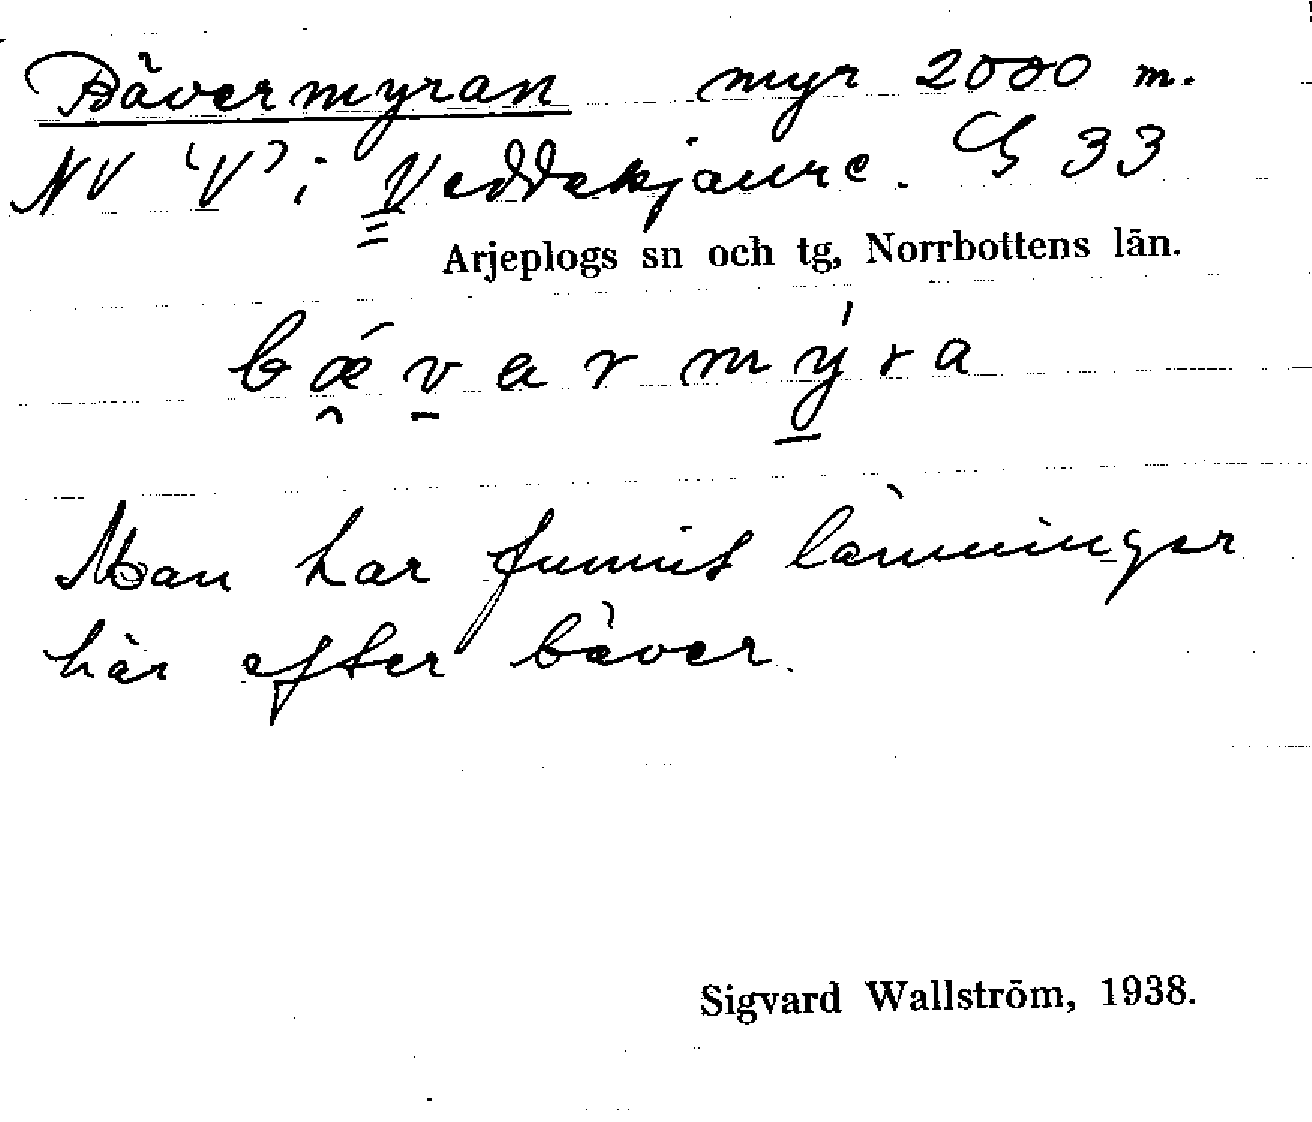 Bävermyran myr 2000 m.
NV 'V' i Veddekjaure. G 33
Arjeplogs sn och tg, Norrbottens län.
bǽvarmýra
Man har funnit lämningar
här efter bäver.
Sigvard Wallström, 1938.